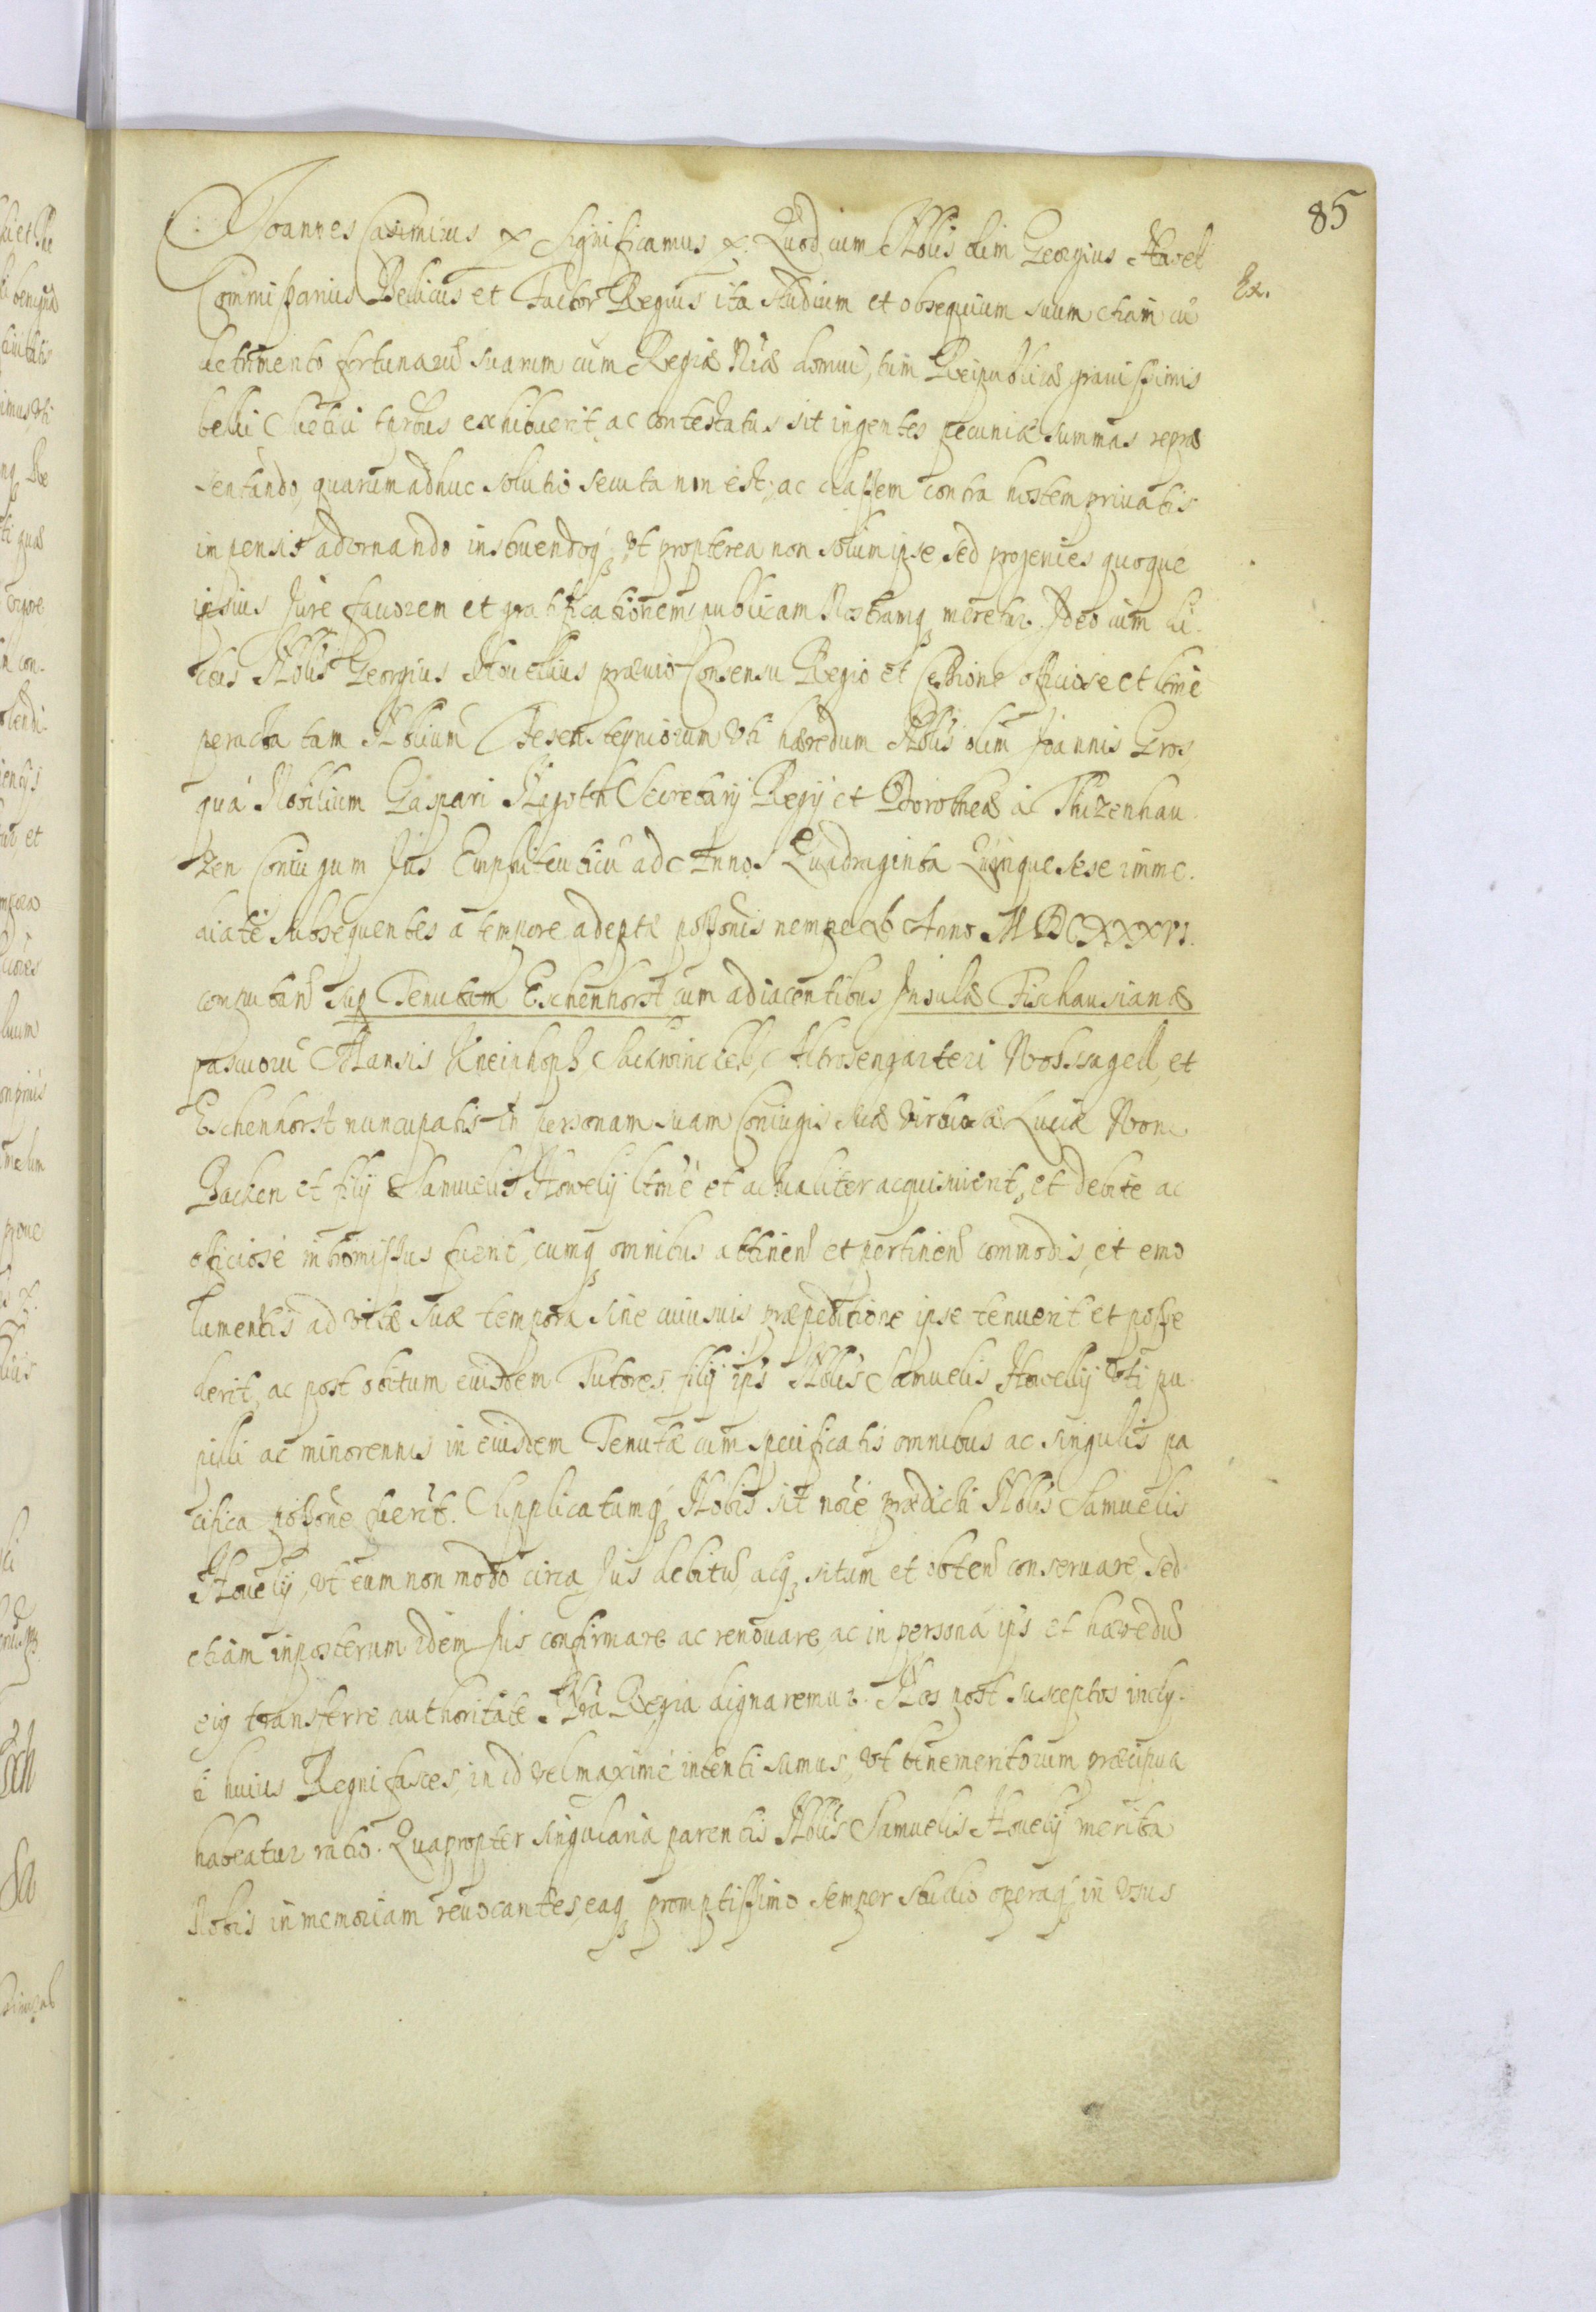 85
Joannes Casimirus &c Significamus &c. Quod cum Nobilis olim Georgius Havel
Ex.
Commissarius Bellicus et Factor Regius ita studium et obsequium suum etiam cũ
detrimento fortunarũ suarum cum Regiæ Nræ domui, tum Reipublicæ gravissimis
belli Suetici exhibuerit, ac contestatus sit ingentes pecuniæ summas repræ
sentando, quarum adhuc solutio secuta non est, ac classem contra hostem privatis
impensis adornando instruendoq́ꝫ, Vt propterea non solum ipse sed progenies quoque
ipsius Jure favorem et gratificationem publicam Nostramqꝫ meretur. Ideo cum di
ctus Nobilis Georgius Hovelius prævio Consensu Regio et Cessione officiose et ltmè
peracta tam Nobilium uti hæredum Nobilis olim Joannis Gros
quà Nobilium Gaspari Secretarij Regij et Dorotheæ à Thizenhau
zen Coniugum Jus Emphiteuticũ ad Annos Quadraginta Quinque sese imme
diatè subsequentes à tempore adeptæ possonis nempe ab Anno MDCXXXVI.
computand sup Tenutam Eschenhorst cum adiacentibus Insulæ Fischausianæ
pascuorũ Mansis Kneinhoph, Sackwinckell, Altrosengarten Wosssagell, et
Eschenhorst nuncupatis in personam suam Coniugis suæ Virtuosæ Luciæ Von
Backen et filij Samuelis Howelij ltmè et actualiter acquisiuerit, et debite ac
officiosè intromissus fuerit, cumqꝫ omnibus attinen et pertinen commodis, et emo
lumentis ad vitæ suæ tempora sine cuiusvis præpeditione ipse tenuerit et posse
derit, ac post obitum eiusdem Tutores filij ips Nobilis Samuelis Howelij Vti pu
pilli ac minorennis in eiusdem Tenutæ cum specificatis omnibus ac singulis pa
cifica possone fuerit. Supplicatumq́ꝫ Nobis sit noie prædicti Nobilis Samuelis
Hovelij, Vt eum non modo circa Jus debitè acqꝫ situm et obten conseruare, Sed
etiam inposterum idem Jus confirmare ac renouare, ac in personã ips et hæredũ
eiꝯ transferre authoritate Nrã Regia dignaremur. Nos post susceptos incly
ti huius Regni fasces, in id vel maximè intenti sumus, Vt benemeritorum præcipua
habeatur ratio. Quapropter singularia parentis Nobilis Samuelis Hovelij merita
Nobis in memoriam reuocantes, eaqꝫ promptissimo semper studio operaq́ꝫ in Vsus